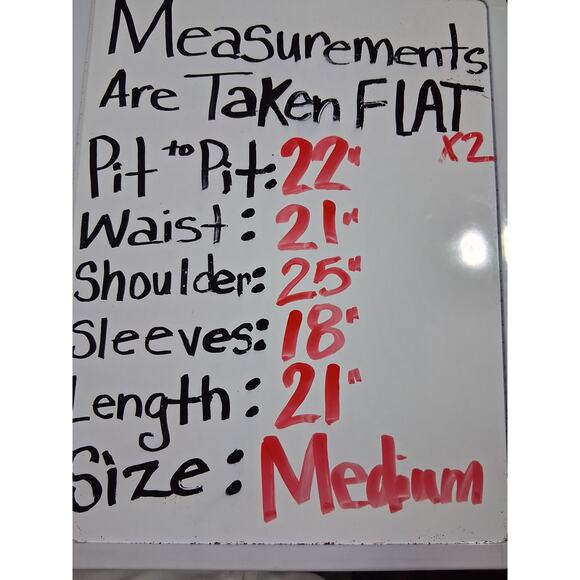 Measurements
Are Taken FLAT
x2
Pit to Pit: 22"
Waist: 21"
Shoulder: 25"
Sleeves: 18"
Length: 21"
Size: Medium